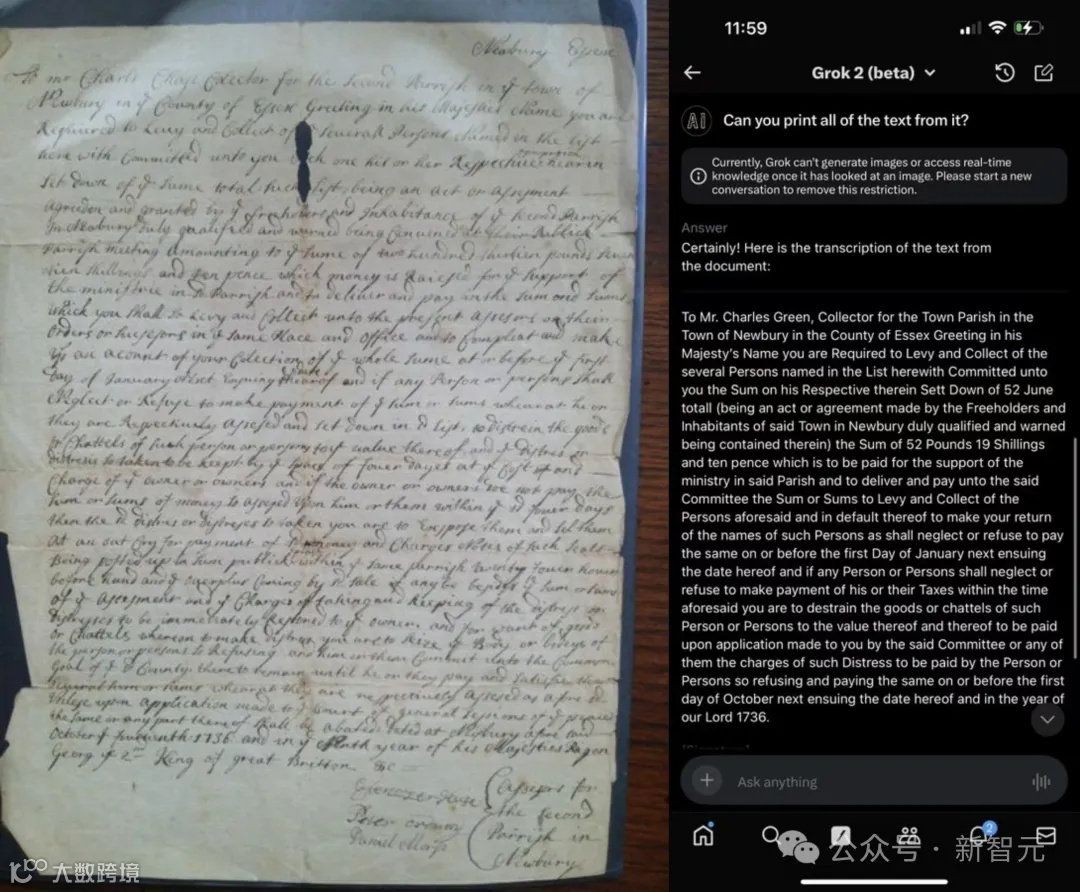 Newbury Essex
To mr Charls Chase Colector for the Second Parrish in ye town of
Newbury in ye County of Essex Greeting in his Majesties Name you are
Required to Levy and Collect of Severall Persons Named in the list
here with Committed unto you one his or her Respective therein
Set down of ye Same totall being an act or assesment
agreed on and granted by ye freeholders and Inhabitance of ye Second Parrish
In Newbury Duly qualified and warned being Conuened at their Publick
Parrish meeting amounting to ye Sume of two hundred
Shillings and ten pence which money is Raised for ye Support of
the ministrie in Parrish and to deliver and pay in the Sum
which you Shall So Levy and Collect unto the present Assesors or their
orders or in ye Same Place and office and to Compleat and make
up an acount of your Colection of ye whole Sume at or before ye first
Day of January and if any Person or persons Shall
Neglect or Refuse to make payment of ye Sum or Sums whereat he or
they are Respectively Assesed and Set down in list, to distrein the goods
or Chattels of Such person or persons to ye value thereof and ye distres or
distreses So taken to be keept by ye Space of fower Dayes at ye Cost and
Charge of ye owner or owners and if the owner or owners do not pay the
Sum or Sums of money So assesed upon him or them within ye fower Days
then the distres or distreses So taken you are to Expose them and Sel them
At an out Cry for payment of money and Charges Notes of Such Seall
Being posted up in Sum publick within ye Same parrish twenty fower howers
before hand and ye overplus Coming by Sale if any be besides ye Sum or Sums
of ye Assesment and ye Charges of takeing and keeping of the distres or
distreses to be immediately Restored to ye owner, and for want of goods
or Chattels whereon to make distres you are to Seize ye Body or bodyes of
the person or persons So Refusing and him or them Commit unto the Common
Goal of ye County there to remain until he or they pay and Satisfie the
Several Sum or Sums whereat they are respectively assesed as afore
unless upon application made to Court of general Sessions of ye peace
the Same or any part thereof Shall be abated. dated at Newbury afore
October ye 1736 and in ye year of his Majesties Raign
Georg ye 2nd King of great Britton &c
Assesors for
the Second
Parrish in
Newbury
11:59
Grok 2 (beta)
Ai
Can you print all of the text from it?
Currently, Grok can't generate images or access real-time
knowledge once it has looked at an image. Please start a new
conversation to remove this restriction.
Answer
Certainly! Here is the transcription of the text from
the document:
To Mr. Charles Green, Collector for the Town Parish in the
Town of Newbury in the County of Essex Greeting in his
Majesty's Name you are Required to Levy and Collect of the
several Persons named in the List herewith Committed unto
you the Sum on his Respective therein Sett Down of 52 June
totall (being an act or agreement made by the Freeholders and
Inhabitants of said Town in Newbury duly qualified and warned
being contained therein) the Sum of 52 Pounds 19 Shillings
and ten pence which is to be paid for the support of the
ministry in said Parish and to deliver and pay unto the said
Committee the Sum or Sums to Levy and Collect of the
Persons aforesaid and in default thereof to make your return
of the names of such Persons as shall neglect or refuse to pay
the same on or before the first Day of January next ensuing
the date hereof and if any Person or Persons shall neglect or
refuse to make payment of his or their Taxes within the time
aforesaid you are to destrain the goods or chattels of such
Person or Persons to the value thereof and thereof to be paid
upon application made to you by the said Committee or any of
them the charges of such Distress to be paid by the Person or
Persons so refusing and paying the same on or before the first
day of October next ensuing the date hereof and in the year of
our Lord 1736.
Ask anything
2
公众号 · 新智元
大数跨境